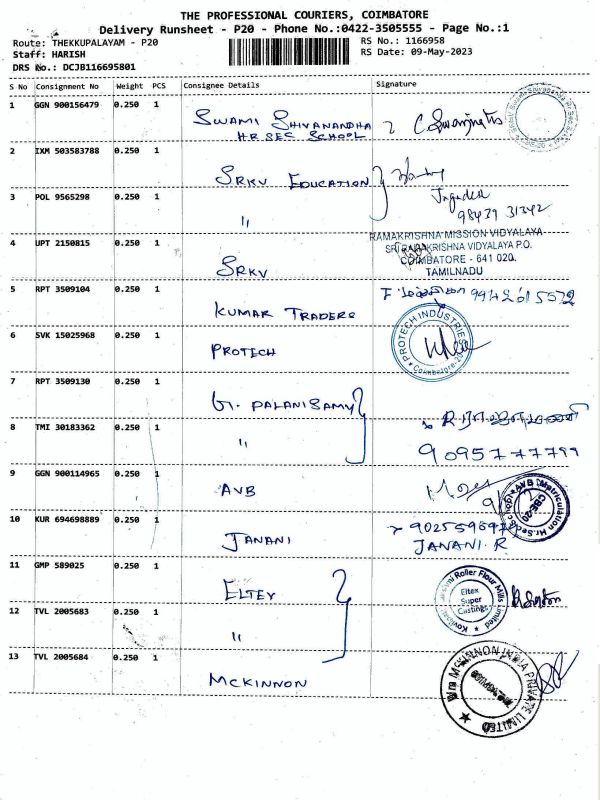 THE PROFESSIONAL COURIERS, COIMBATORE
Delivery Runsheet - P20 - Phone No.:0422-3505555 - Page No.:1
Route: THEKKUPALAYAM - P20
RS No.: 1166958
Staff: HARISH
RS Date: 09-May-2023
DRS No.: DCJB116695801
S No Consignment No Weight PCS Consignee Details Signature
1 GGN 900156479 0.250 1
SWAMI SHIVANANDHA
HR SEC SCHOOL
2 IXM 503583788 0.250 1
SRKV EDUCATION
3 POL 9565298 0.250 1
"
98439 31342
4 UPT 2150815 0.250 1
SRKV
RAMAKRISHNA MISSION VIDYALAYA
SRI RAMAKRISHNA VIDYALAYA P.O.
COIMBATORE - 641 020.
TAMILNADU
5 RPT 3509104 0.250 1
KUMAR TRADERS
9942615572
6 SVK 15025968 0.250 1
PROTECH
PROTECH INDUSTRIES
Coimbatore-20
7 RPT 3509130 0.250 1
G. PALANISAMY
8 TMI 30183362 0.250 1
"
9095777799
9 GGN 900114965 0.250 1
AVB
AVB Matriculation Hr.Sec.School
CBE-20
10 KUR 694698889 0.250 1
JANANI
JANANI.R
11 GMP 589025 0.250 1
ELTEY
Roller Flour Mills Limited
Eltex
Super
Castings
12 TVL 2005683 0.250 1
"
13 TVL 2005684 0.250 1
MCKINNON
MCKINNON INDIA PRIVATE LIMITED